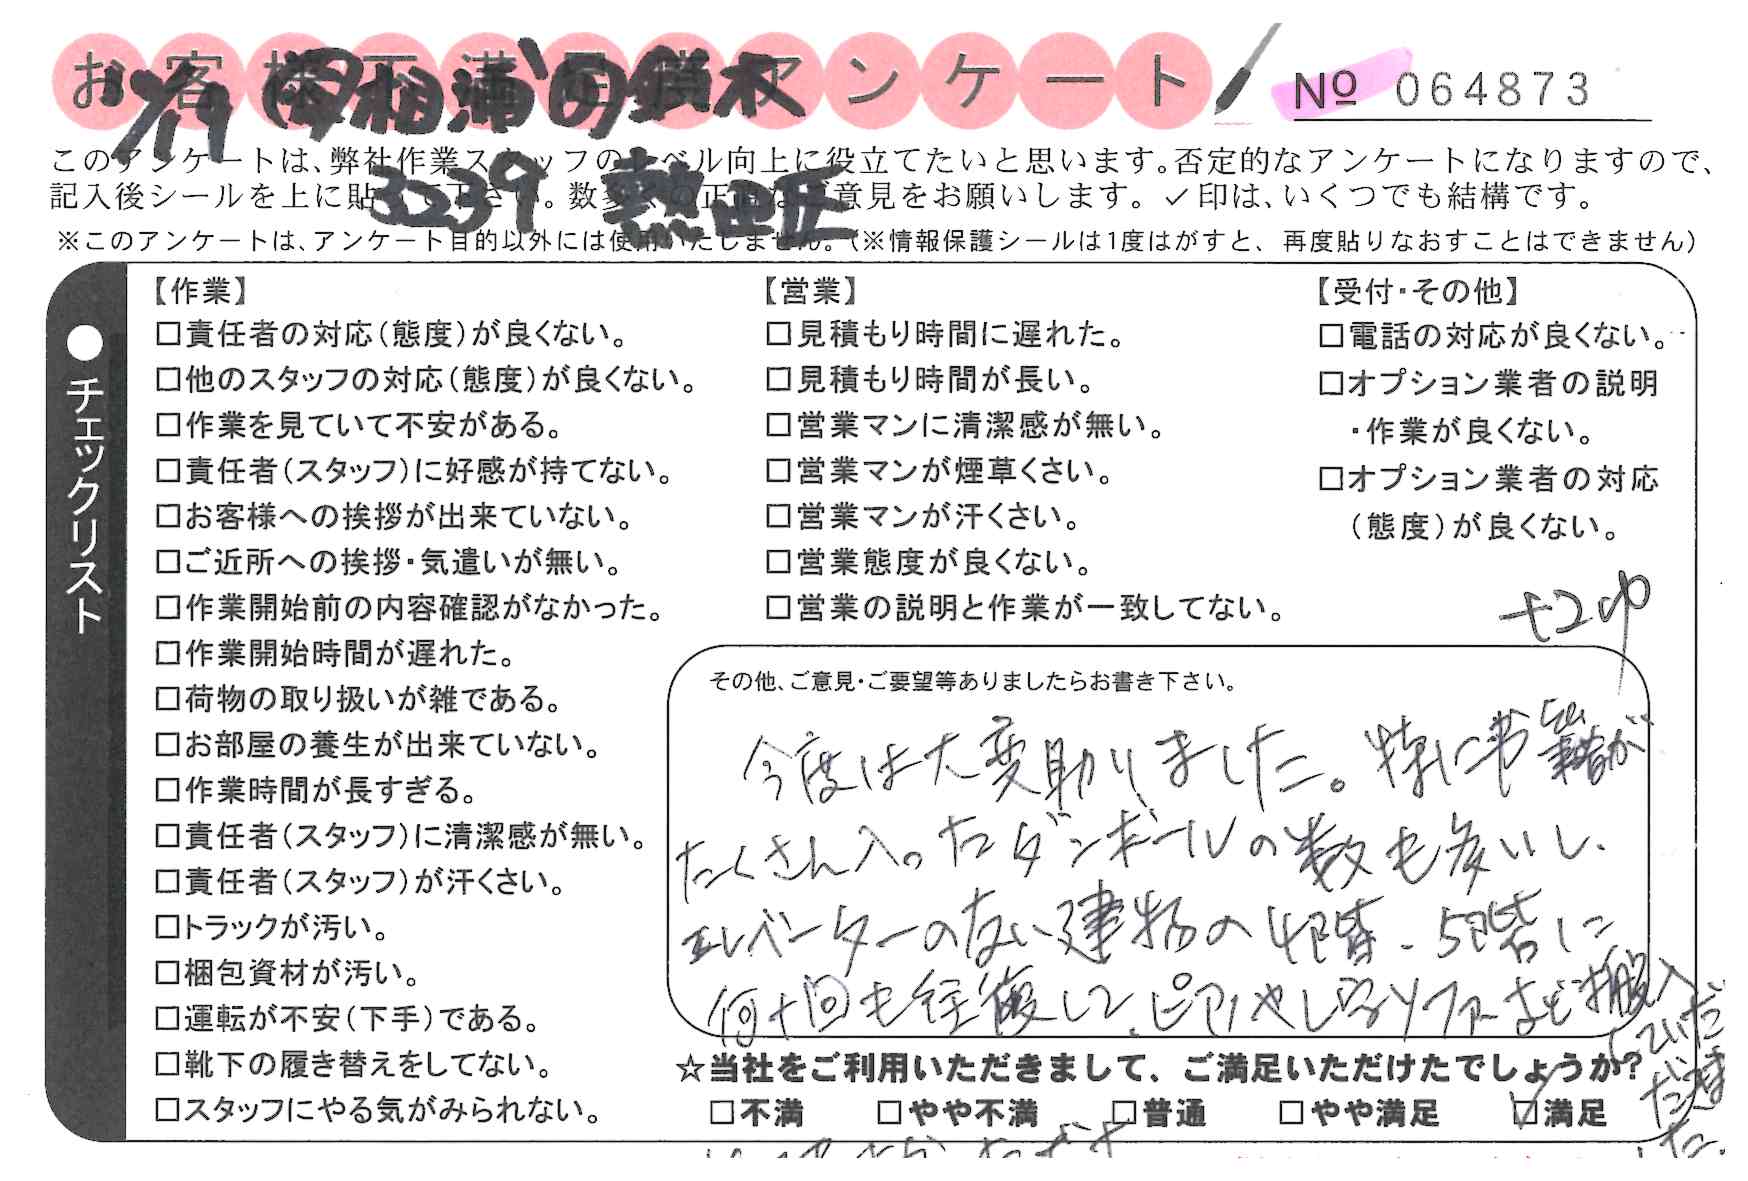 お客様不満足度アンケート
№ 064873
3239
このアンケートは、弊社作業スタッフのレベル向上に役立てたいと思います。否定的なアンケートになりますので、
記入後シールを上に貼って下さい。数多くの正直なご意見をお願いします。✓印は、いくつでも結構です。
※このアンケートは、アンケート目的以外には使用いたしません。(※情報保護シールは1度はがすと、再度貼りなおすことはできません)
●チェックリスト
【作業】
□責任者の対応(態度)が良くない。
□他のスタッフの対応(態度)が良くない。
□作業を見ていて不安がある。
□責任者(スタッフ)に好感が持てない。
□お客様への挨拶が出来ていない。
□ご近所への挨拶・気遣いが無い。
□作業開始前の内容確認がなかった。
□作業開始時間が遅れた。
□荷物の取り扱いが雑である。
□お部屋の養生が出来ていない。
□作業時間が長すぎる。
□責任者(スタッフ)に清潔感が無い。
□責任者(スタッフ)が汗くさい。
□トラックが汚い。
□梱包資材が汚い。
□運転が不安(下手)である。
□靴下の履き替えをしてない。
□スタッフにやる気がみられない。
【営業】
□見積もり時間に遅れた。
□見積もり時間が長い。
□営業マンに清潔感が無い。
□営業マンが煙草くさい。
□営業マンが汗くさい。
□営業態度が良くない。
□営業の説明と作業が一致してない。
【受付・その他】
□電話の対応が良くない。
□オプション業者の説明
・作業が良くない。
□オプション業者の対応
(態度)が良くない。
その他、ご意見・ご要望等ありましたらお書き下さい。
今度は大変助りました。特に書籍が
たくさん入ったダンボールの数も多いし、
エレベーターのない建物の4階、5階に
何十回も往復して、ピアノやL字ソファーなど搬入
していただ
だきま
した。
☆当社をご利用いただきまして、ご満足いただけたでしょうか?
□不満 □やや不満 □普通 □やや満足 ☑満足